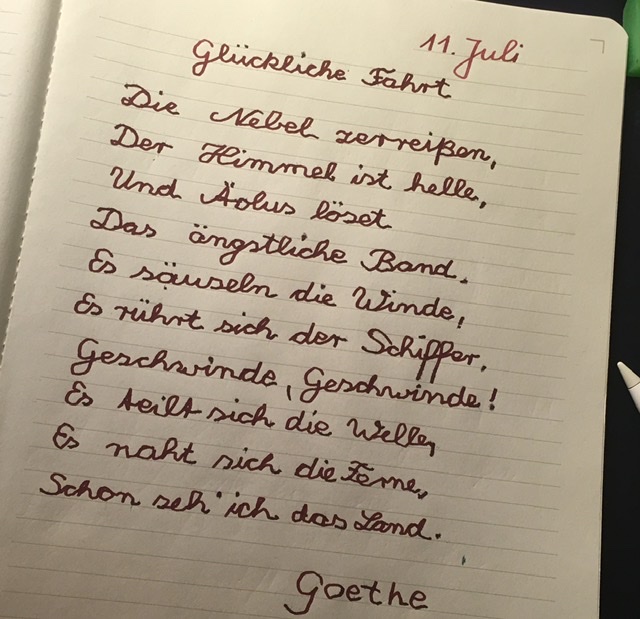 11. Juli
Glückliche Fahrt
Die Nebel zerreißen,
Der Himmel ist helle,
Und Äolus löset
Das ängstliche Band.
Es säuseln die Winde,
Es rührt sich der Schiffer.
Geschwinde, Geschwinde!
Es teilt sich die Welle,
Es naht sich die Ferne,
Schon seh' ich das Land.
Goethe